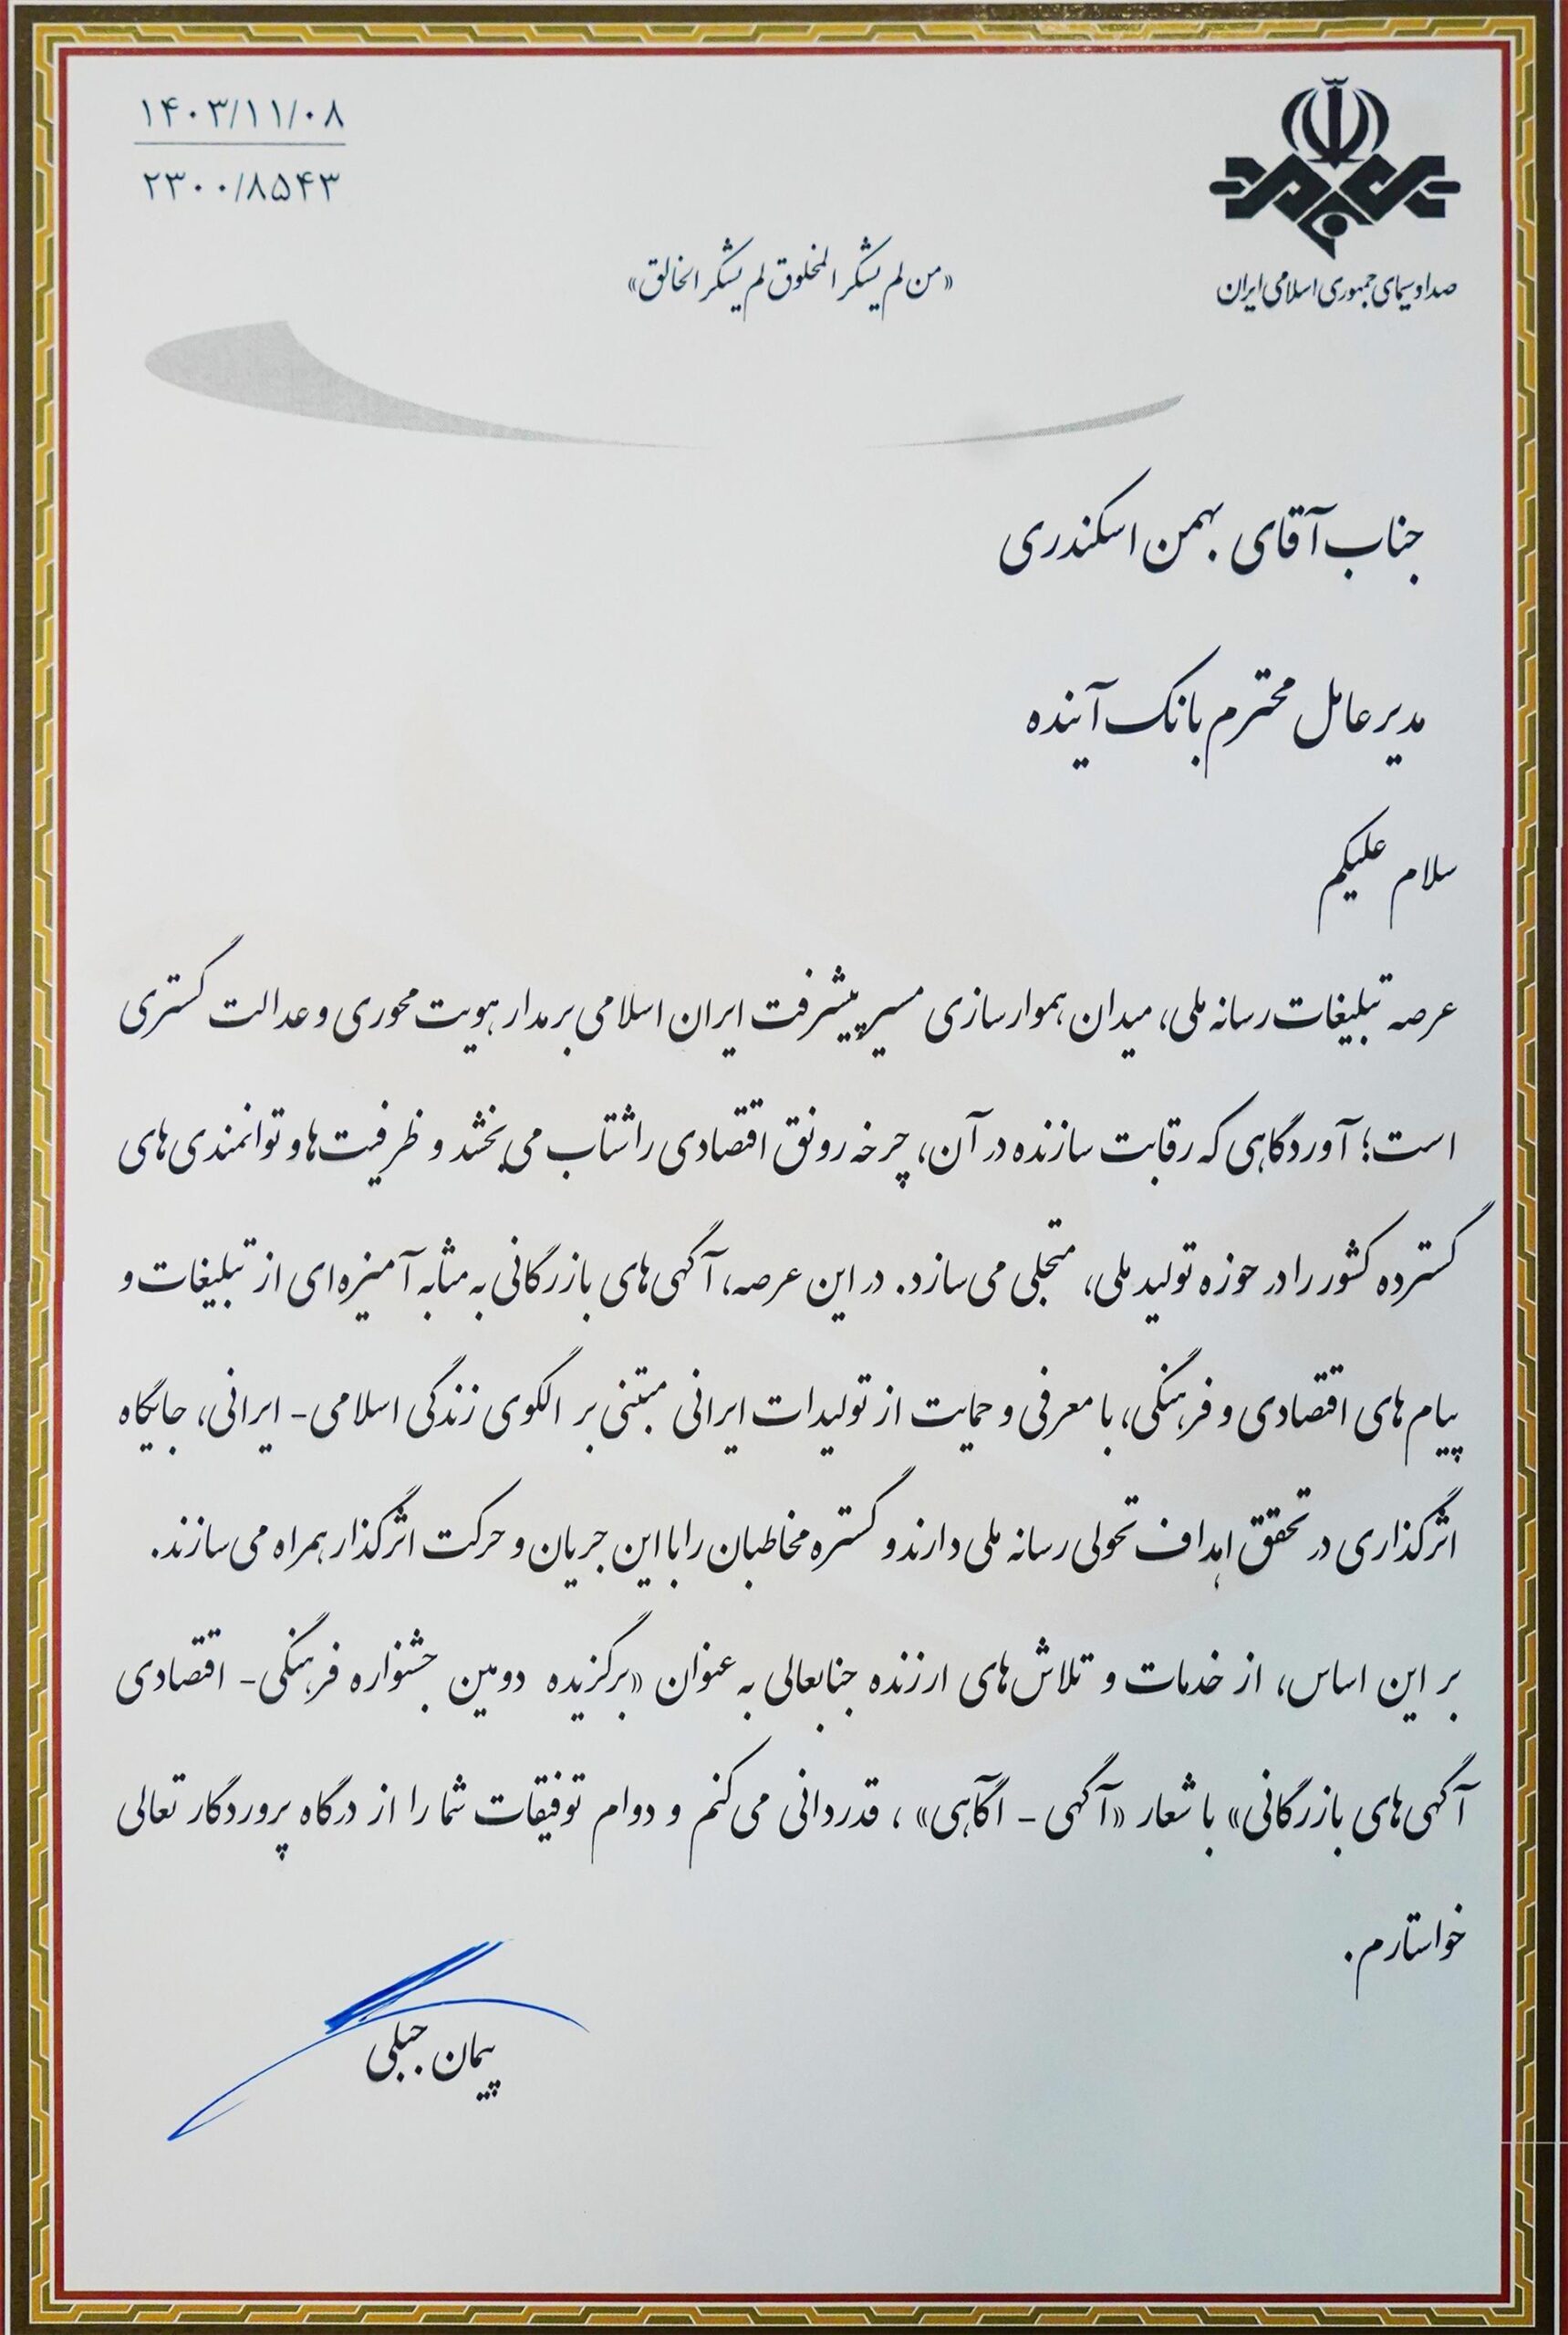 ۱۴۰۳/۱۱/۰۸
۲۳۰۰/۸۵۴۳
صدا و سیمای جمهوری اسلامی ایران
«من لم یشکر المخلوق لم یشکر الخالق»
جناب آقای بهمن اسکندری
مدیر عامل محترم بانک آینده
سلام علیکم
عرصه تبلیغات رسانه ملی، میدان هموارسازی مسیر پیشرفت ایران اسلامی بر مدار هویت محوری و عدالت گستری
است؛ آوردگاهی که رقابت سازنده در آن، چرخه رونق اقتصادی را شتاب می‌بخشد و ظرفیت‌ها و توانمندی‌های
گسترده کشور را در حوزه تولید ملی، متجلی می‌سازد. در این عرصه، آگهی‌های بازرگانی به مثابه آمیزه‌ای از تبلیغات و
پیام‌های اقتصادی و فرهنگی، با معرفی و حمایت از تولیدات ایرانی مبتنی بر الگوی زندگی اسلامی - ایرانی، جایگاه
اثرگذاری در تحقق اهداف تحولی رسانه ملی دارند و گستره مخاطبان را با این جریان و حرکت اثرگذار همراه می‌سازند.
بر این اساس، از خدمات و تلاش‌های ارزنده جنابعالی به عنوان «برگزیده دومین جشنواره فرهنگی - اقتصادی
آگهی‌های بازرگانی» با شعار «آگهی - آگاهی» ، قدردانی می‌کنم و دوام توفیقات شما را از درگاه پروردگار تعالی
خواستارم.
پیمان جبلی